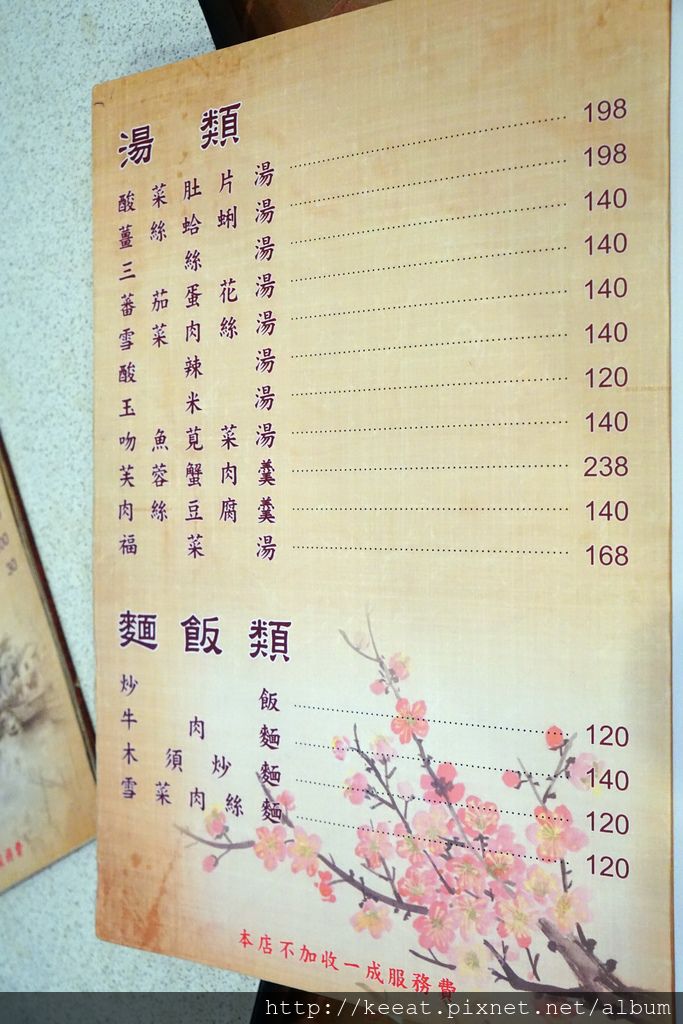 湯類
酸菜肚片湯 198
薑絲蛤蜊湯 198
三絲湯 140
蕃茄蛋花湯 140
雪菜肉絲湯 140
酸辣湯 140
玉米湯 120
吻魚莧菜湯 140
芙蓉蟹肉羹 238
肉絲豆腐羹 140
福菜湯 168
麵飯類
炒飯 120
牛肉麵 140
木須炒麵 120
雪菜肉絲麵 120
本店不加收一成服務費
務費
http://keeat.pixnet.net/album